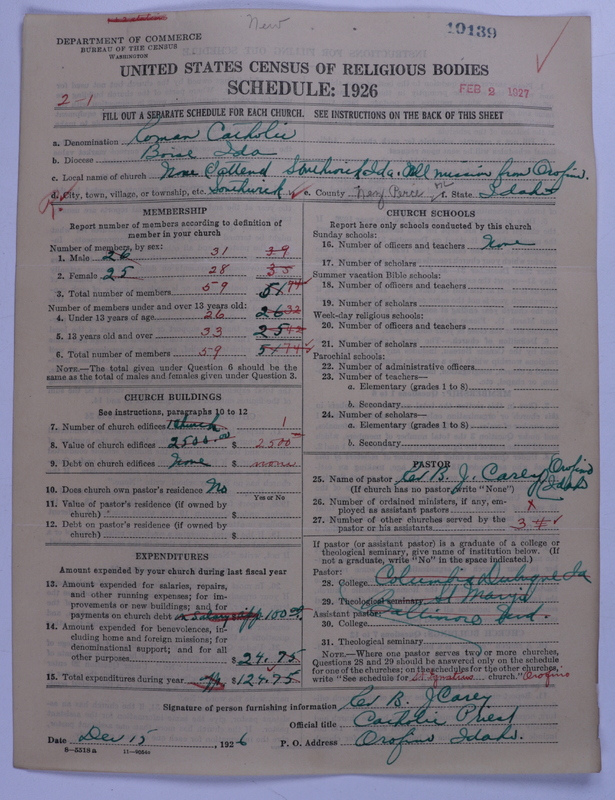 New
10139
DEPARTMENT OF COMMERCE
BUREAU OF THE CENSUS
WASHINGTON
UNITED STATES CENSUS OF RELIGIOUS BODIES
SCHEDULE: 1926
FEB 2 1927
2-1
FILL OUT A SEPARATE SCHEDULE FOR EACH CHURCH. SEE INSTRUCTIONS ON THE BACK OF THIS SHEET
a. Denomination Roman Catholic
b. Diocese Boise Ida
c. Local name of church None Ida. mission from Orofino.
d. City, town, village, or township, etc. e. County Nez Perce f. State Idaho
MEMBERSHIP
Report number of members according to definition of member in your church
Number of members, by sex:
1. Male 26 31 39
2. Female 25 28 35
3. Total number of members 59 51 74
Number of members under and over 13 years old:
4. Under 13 years of age 26 26 32
5. 13 years old and over 33 25 42
6. Total number of members 59 51 74
NOTE.—The total given under Question 6 should be the same as the total of males and females given under Question 3.
CHURCH BUILDINGS
See instructions, paragraphs 10 to 12
7. Number of church edifices 1 church 1
8. Value of church edifices 2500.00 $ 2500
9. Debt on church edifices None $ none
10. Does church own pastor's residence? No
Yes or No
11. Value of pastor's residence (if owned by church) $
12. Debt on pastor's residence (if owned by church) $
EXPENDITURES
Amount expended by your church during last fiscal year
13. Amount expended for salaries, repairs, and other running expenses; for improvements or new buildings; and for payments on church debt 100.00
14. Amount expended for benevolences, including home and foreign missions; for denominational support; and for all other purposes $ 24.75
15. Total expenditures during year $ 124.75
CHURCH SCHOOLS
Report here only schools conducted by this church
Sunday schools:
16. Number of officers and teachers None
17. Number of scholars
Summer vacation Bible schools:
18. Number of officers and teachers
19. Number of scholars
Week-day religious schools:
20. Number of officers and teachers
21. Number of scholars
Parochial schools:
22. Number of administrative officers
23. Number of teachers—
a. Elementary (grades 1 to 8)
b. Secondary
24. Number of scholars—
a. Elementary (grades 1 to 8)
b. Secondary
PASTOR
25. Name of pastor Rev B. J. Carey Orofino Idaho
(If church has no pastor write "None")
26. Number of ordained ministers, if any, employed as assistant pastors x
27. Number of other churches served by the pastor or his assistants 3
If pastor (or assistant pastor) is a graduate of a college or theological seminary, give name of institution below. (If not a graduate, write "No" in the space indicated.)
Pastor:
28. College Columbia Dubuque Ia
29. Theological seminary St Mary's
Assistant pastor: Baltimore
30. College
31. Theological seminary
NOTE.—Where one pastor serves two or more churches, Questions 28 and 29 should be answered only on the schedule for one of the churches; on the schedules for the other churches, write "See schedule for St Ignatius church." Orofino
Signature of person furnishing information Rev B. J Carey
Official title Catholic Priest
Date Dec 15, 1926 P. O. Address Orofino Idaho.
8—5318a 11—9054a